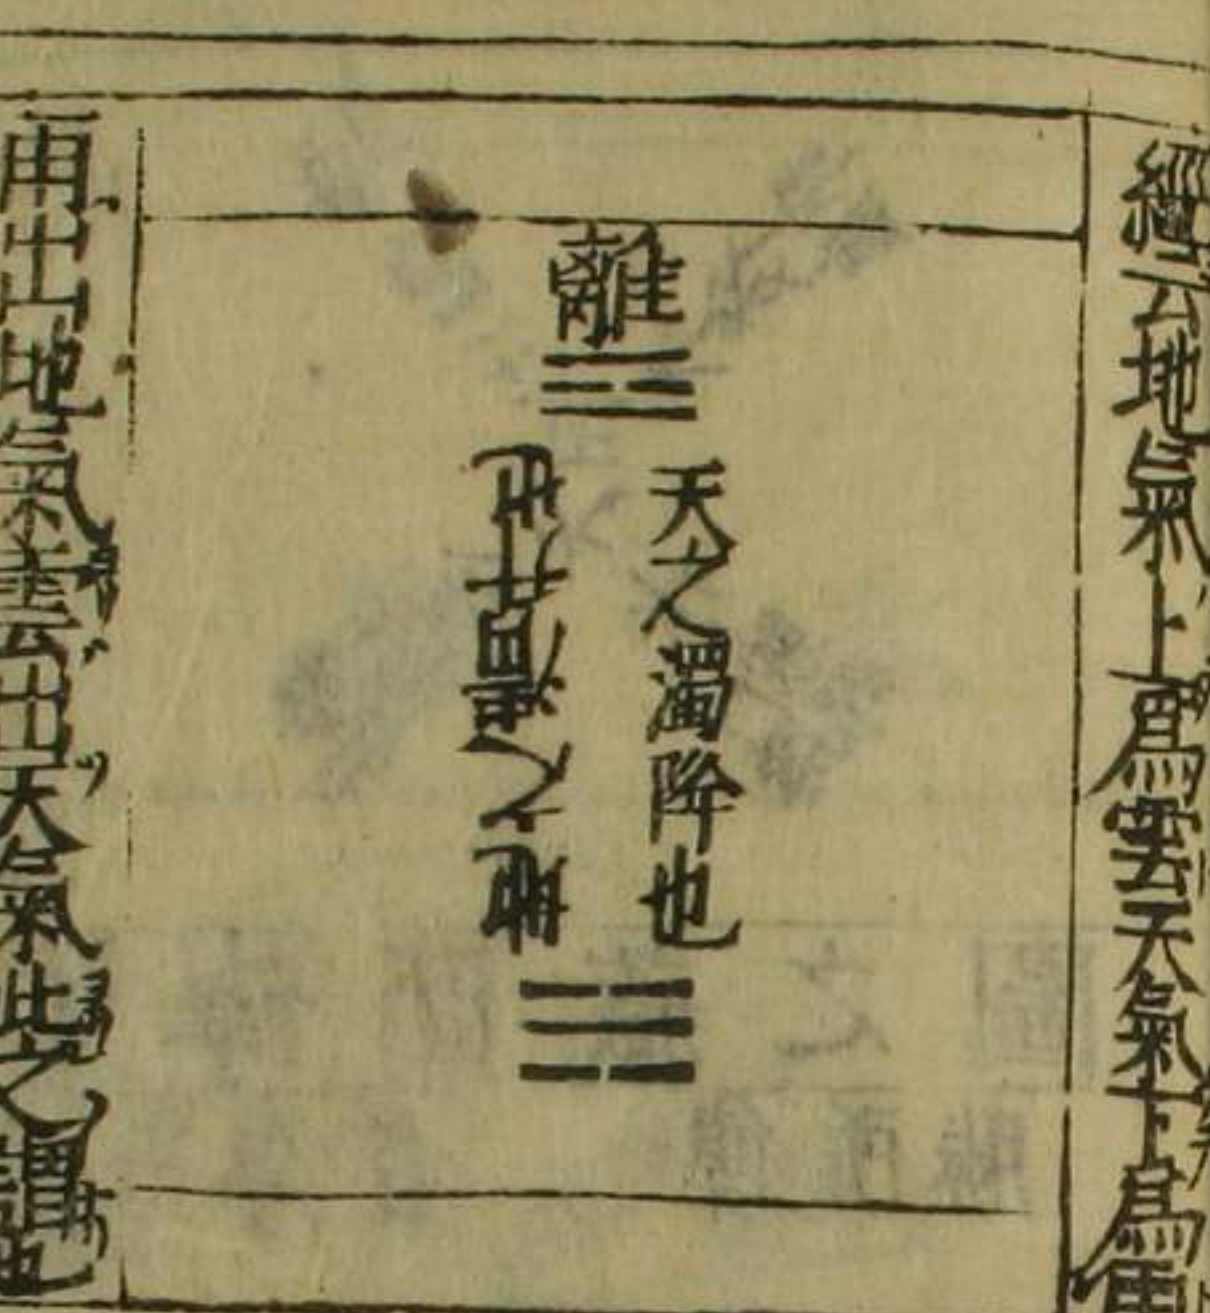 經云地氣上爲雲天氣下爲雨
離
☲
天之濁降也
地之清升也
☵
雨出地氣雲出天氣此之謂也